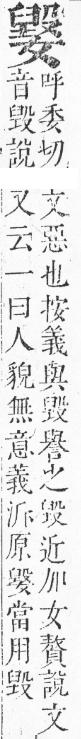 嫛
呼委切
音毀說
文惡也按義與毀譽之毀近加女贅說文
又云一曰人貌無意義泝原嫛當用毀